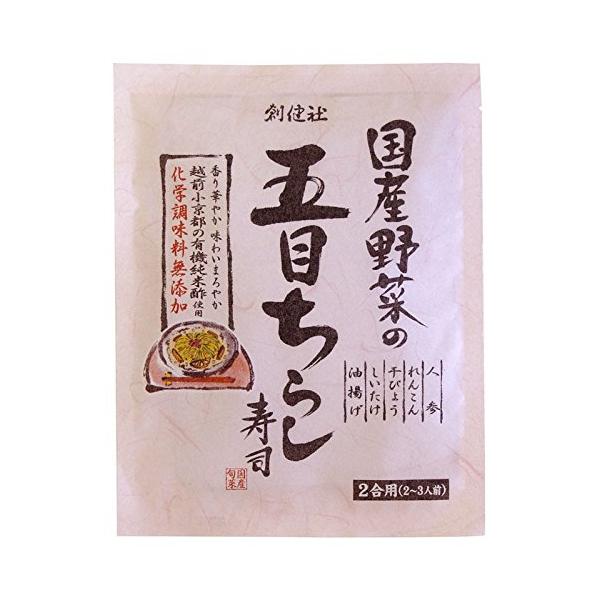 創健社
国産野菜の
五目ちらし
寿司
香り華やか 味わいまろやか
越前小京都の有機純米酢使用
化学調味料無添加
人参
れんこん
干ぴょう
しいたけ
油揚げ
国産
旬菜
2合用(2〜3人前)